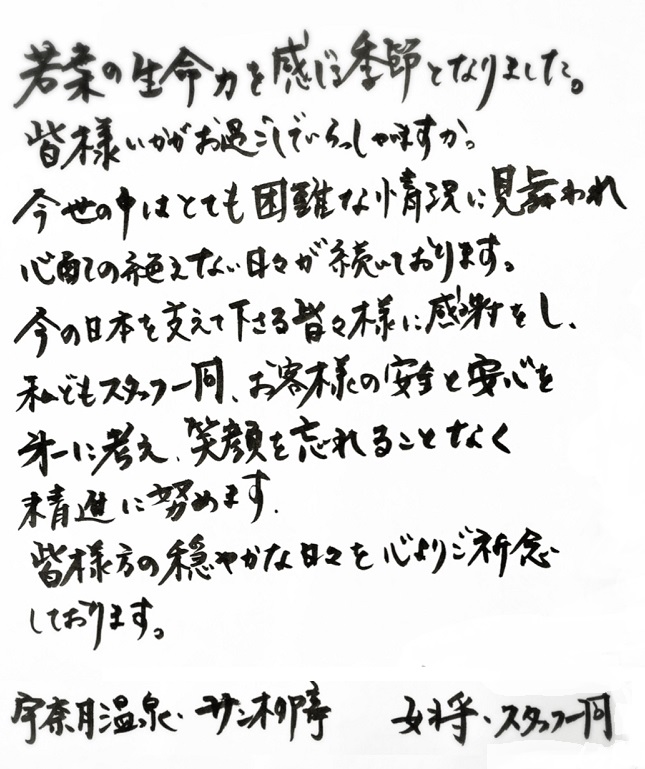 若葉の生命力を感じる季節となりました。
皆様いかがお過ごしでいらっしゃいますか。
今世の中はとても困難な情況に見舞われ
心配の絶えない日々が続いております。
今の日本を支えて下さる皆々様に感謝をし、
私どもスタッフ一同、お客様の安全と安心を
第一に考え、笑顔を忘れることなく
精進に努めます.
皆様方の穏やかな日々を心よりご祈念
しております。
宇奈月温泉・サン柳亭 女将・スタッフ一同